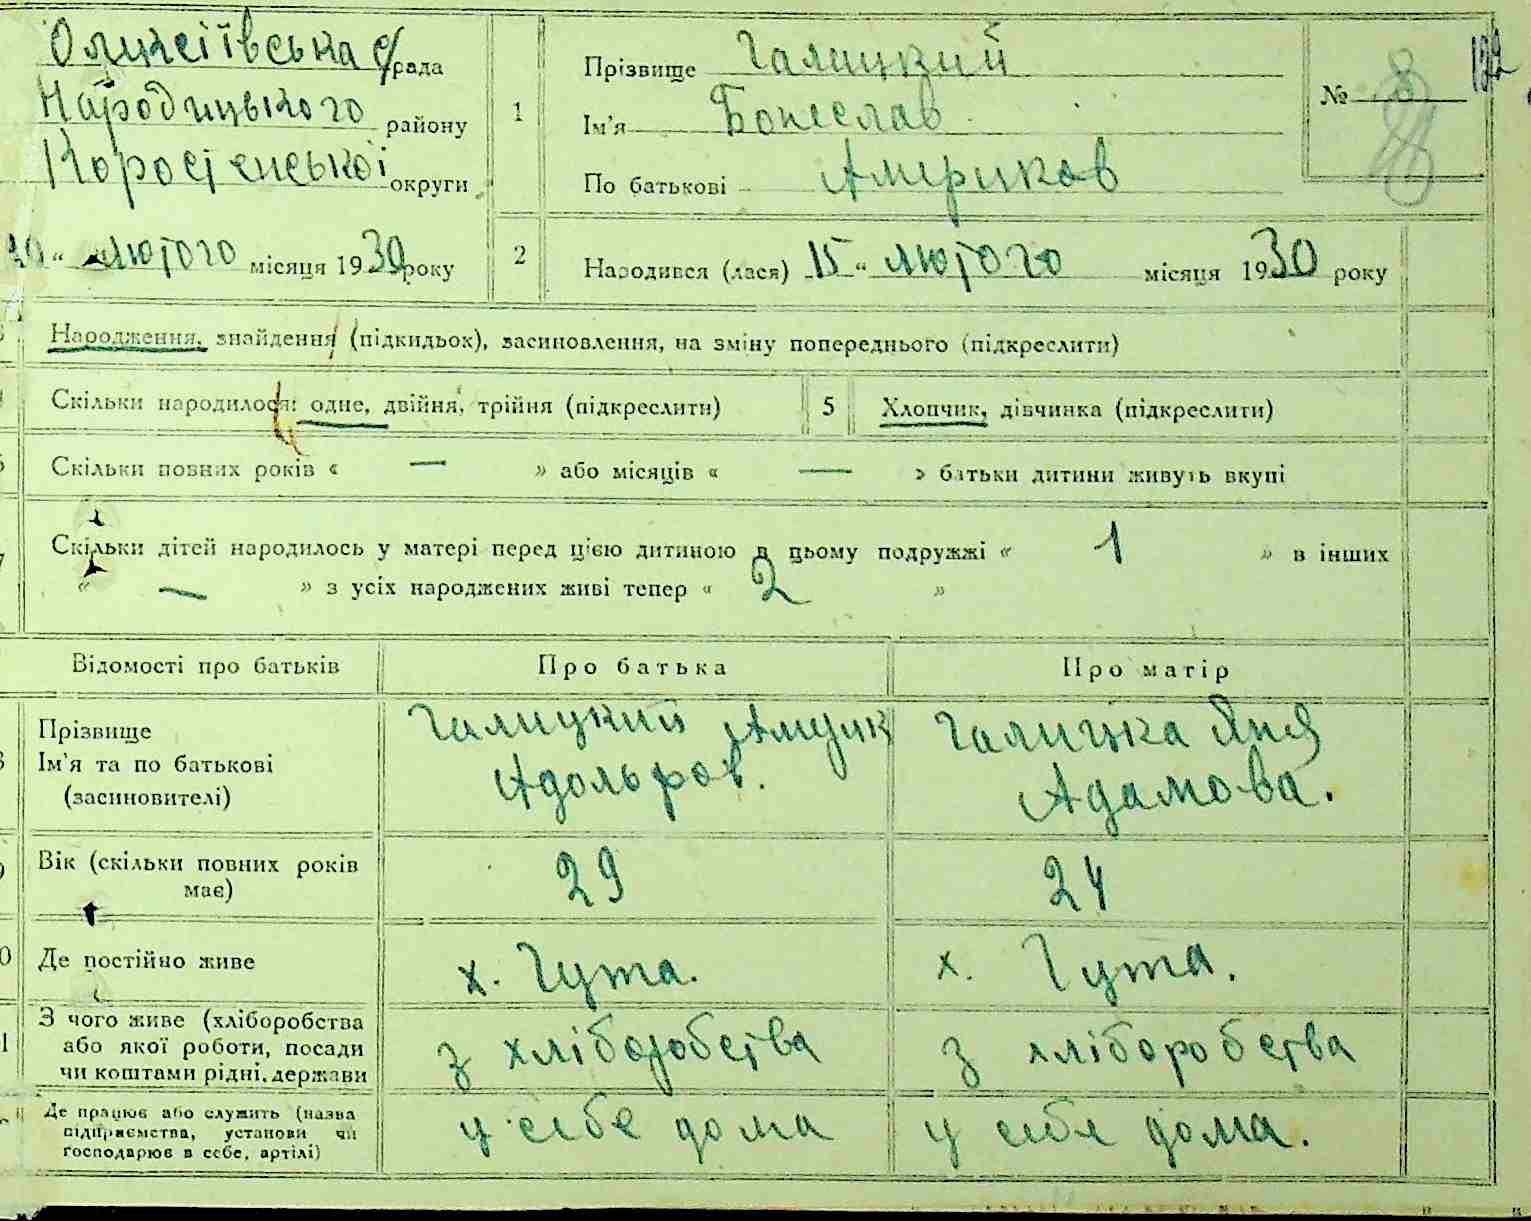 Олексіївська с/рада
Народицького району
Коростенської округи
лютого місяця 1930 року
1
Прізвище Галицкий
Ім'я Болеслав
По батькові Америков
№ 8
2
Народився (лася) 15 " лютого місяця 1930 року
Народження, знайдення (підкидьох), засиновлення, на зміну попереднього (підкреслити)
Скільки народилося: одне, двійня, трійня (підкреслити)
5 Хлопчик, дівчинка (підкреслити)
Скільки повних років « — » або місяців « — » батьки дитини живуть вкупі
Скільки дітей народилось у матері перед цією дитиною в цьому подружжі « 1 » в інших
« — » з усіх народжених живі тепер « 2 »
Відомості про батьків Про батька Про матір
Прізвище
Ім'я та по батькові
(засиновителі)
Галицкий
Адольфов.
Галицка Яня
Адамова.
Вік (скільки повних років
має)
29 24
Де постійно живе х. Гута. х. Гута.
З чого живе (хліборобства
або якої роботи, посади
чи коштами рідні, держави
з хліборобства з хліборобства
Де працює або служить (назва
підприємства, установи чи
господарює в себе, артілі)
у себе дома у себе дома.